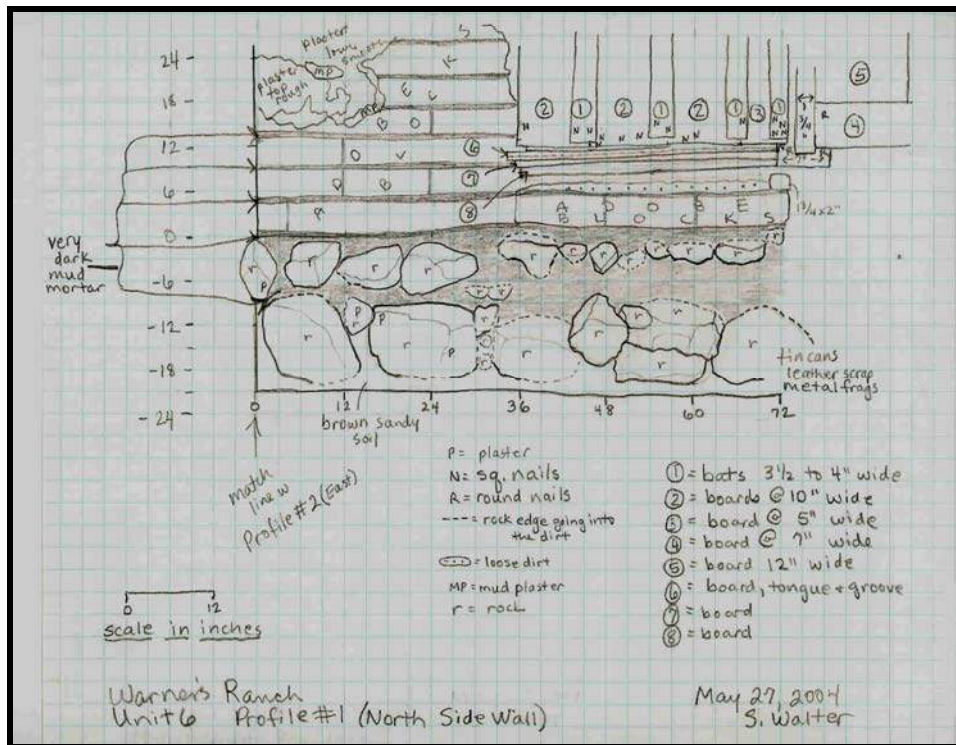 24
18
12
6
0
-6
-12
-18
-24
plaster
low
smooth
plaster
top
rough
MP
MP
S
K
E L
B O
O V
D B
A
② ① ② ① ② ① ③ ①
N N N N N N N N N N N
3 3/4"
R
⑤
④
⑥
⑦
⑧
7"
1 3/4 x 2"
A D O B E
B L O C K S
very
dark
mud
mortar
r r r r r r r r r r r
p
r r
r p r p r p r r r r r r r
tin cans
leather scrap
metal frags
0 12 24 36 48 60 72
brown sandy
soil
match
line w
Profile #2 (East)
P = plaster
N = sq. nails
R = round nails
--- = rock edge going into
the dirt
= loose dirt
MP = mud plaster
r = rock
① = bats 3 1/2 to 4" wide
② = boards @ 10" wide
③ = board @ 5" wide
④ = board @ 7" wide
⑤ = board 12" wide
⑥ = board, tongue + groove
⑦ = board
⑧ = board
0 12
scale in inches
Warner's Ranch
Unit 6 Profile #1 (North Side Wall)
May 27, 2004
S. Walter